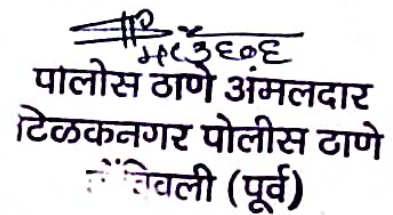 पोलीस ठाणे अंमलदार
टिळकनगर पोलीस ठाणे
डोंबिवली (पूर्व)